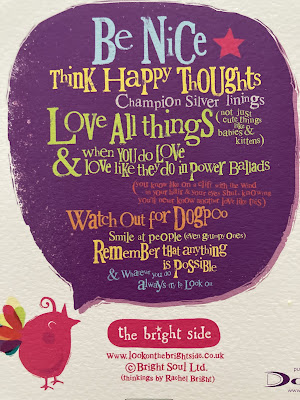 Be Nice
Think Happy Thoughts
Champion Silver linings
Love All things (not just cute things like babies & kittens)
& when you do LOVE
love like they do in power Ballads
(you know like on a cliff with the wind
in your hair & your eyes shut & knowing
you'll never know another love like this)
Watch Out for Dogpoo
Smile at people (even grumpy ones)
Remember that anything
is Possible
& Whatever you do
always try to Look on
the bright side
www.lookonthebrightside.co.uk
© Bright Soul Ltd.
(thinkings by Rachel Bright)